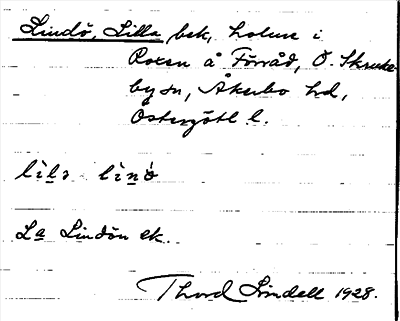 Lindö, Lilla, bek, holme i
Roxen å Förråd, Ö. Skruke-
by sn, Åkerbo hd,
Östergötl l.
lìla lìnö́
La Lindön ek.
Thord Lindell 1928.